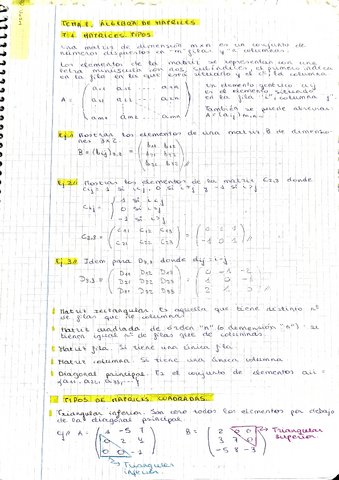 TEMA 1. ÁLGEBRA DE MATRICES
1.1. MATRICES. TIPOS
Una matriz de dimensión mxn es un conjunto de
números dispuestos en "m" filas y "n" columnas.
Los elementos de la matriz se representan con una
letra minúscula con dos subíndices, el primero indica
en la fila en la que está situado y el 2º, la columna
A =
Un elemento genérico aij
es el elemento situado
en la fila "i", columna "j".
También se puede abreviar
Ej.1) Mostrar los elementos de una matriz B de dimensio-
nes 3x2
B = (bij)3,2 = ( b11 b12
b21 b22
b31 b32 )
Ej.2) Mostrar los elementos de la matriz C2,3 donde
Cij = 1 si i<j, 0 si i=j y -1 si i>j
Cij = { 1 si i<j
0 si i=j
-1 si i>j
C2,3 = ( C11 C12 C13
C21 C22 C23 ) = ( 0 1 1
-1 0 1 )
Ej.3) Idem para D3,3 donde dij = i-j
D3,3 = ( D11 D12 D13
D21 D22 D23
D31 D32 D33 ) = ( 0 -1 -2
1 0 -1
2 1 0 )
Matriz rectangular. Es aquella que tiene distinto nº
de filas que de columnas.
Matriz cuadrada de orden "n" (o dimensión "n"). Si
tienen igual nº de filas que de columnas.
Matriz fila. Si tiene una única fila
Matriz columna. Si tiene una única columna
Diagonal principal. Es el conjunto de elementos aii =
{a11, a22, a33, ...}
TIPOS DE MATRICES CUADRADAS.
Triangular inferior. Son cero todos los elementos por debajo
de la diagonal principal.
Ej: A = ( 1 -5 7
0 2 4
0 0 -1 )
B = ( 2 0 0
3 7 0
-5 8 -3 )
Triangular
superior
Triangular
inferior